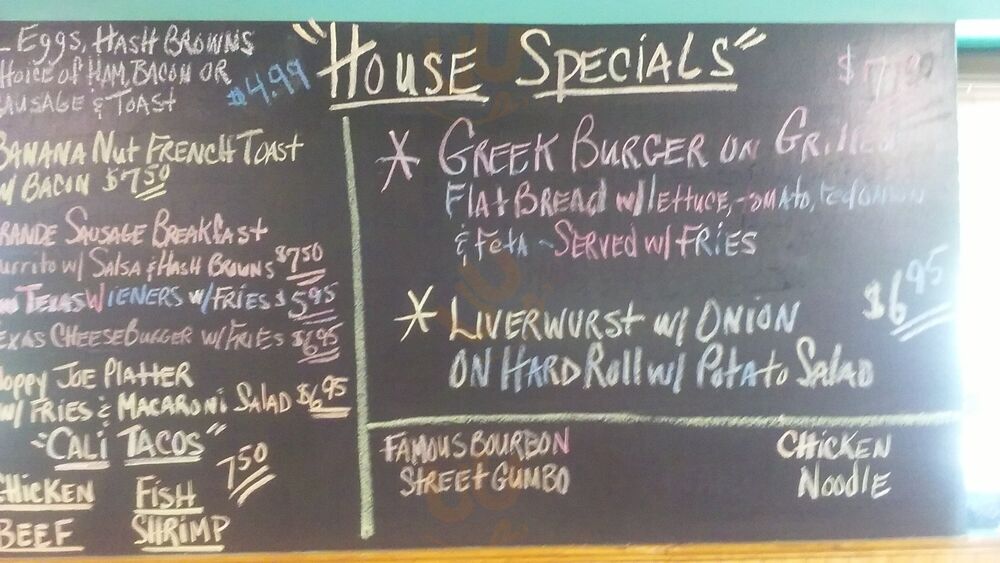 Eggs, Hash Browns
Choice of Ham, Bacon or
Sausage & Toast
$4.99
Banana Nut French Toast
w/ Bacon $7.50
Grande Sausage Breakfast
Burrito w/ Salsa & Hash Browns $7.50
Texas Wieners w/ Fries $5.95
Texas Cheese Burger w/ Fries $6.95
Sloppy Joe Platter
w/ Fries & Macaroni Salad $6.95
"Cali Tacos"
7.50
Chicken Fish
Beef Shrimp
"House Specials"
* Greek Burger on Grilled
Flat Bread w/ lettuce, tomato, red onion
& Feta - Served w/ Fries
* Liverwurst w/ Onion
on Hard Roll w/ Potato Salad
$6.95
Famous Bourbon
Street Gumbo
Chicken
Noodle